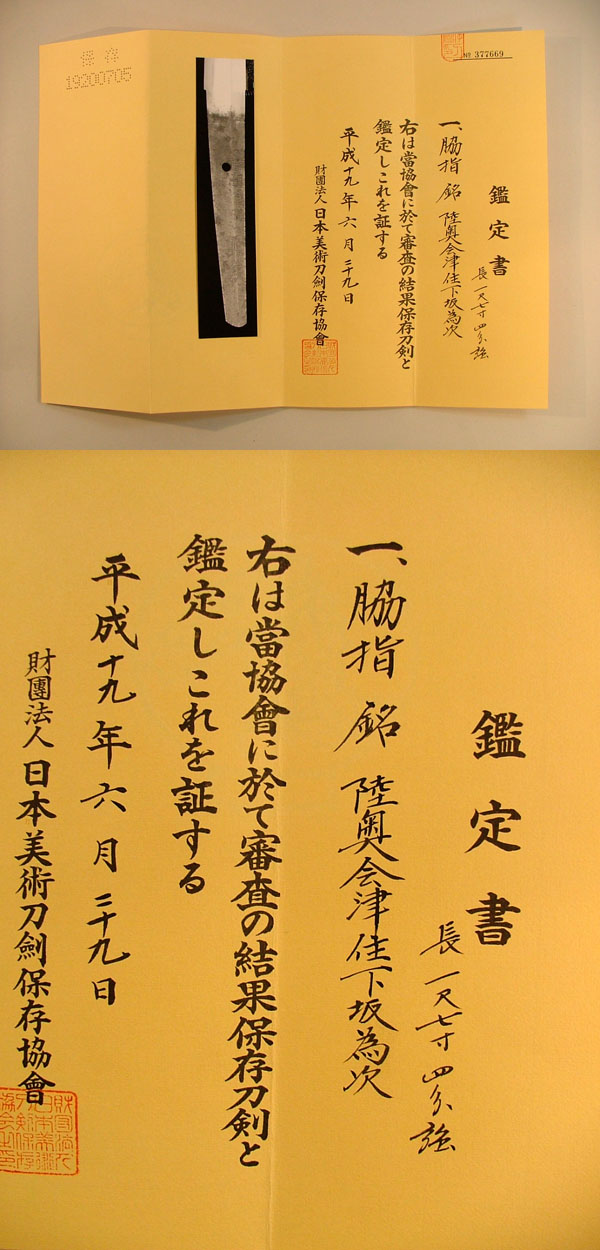 保存
19200705
№ 377669
鑑定書
長一尺七寸四分強
一、脇指 銘 陸奥会津住下坂為次
右は當協會に於て審査の結果保存刀剣と
鑑定しこれを証する
平成十九年六月二十九日
財團法人日本美術刀劍保存協會
鑑定書
長一尺七寸四分強
一、脇指 銘 陸奥会津住下坂為次
右は當協會に於て審査の結果保存刀剣と
鑑定しこれを証する
平成十九年六月二十九日
財團法人日本美術刀劍保存協會